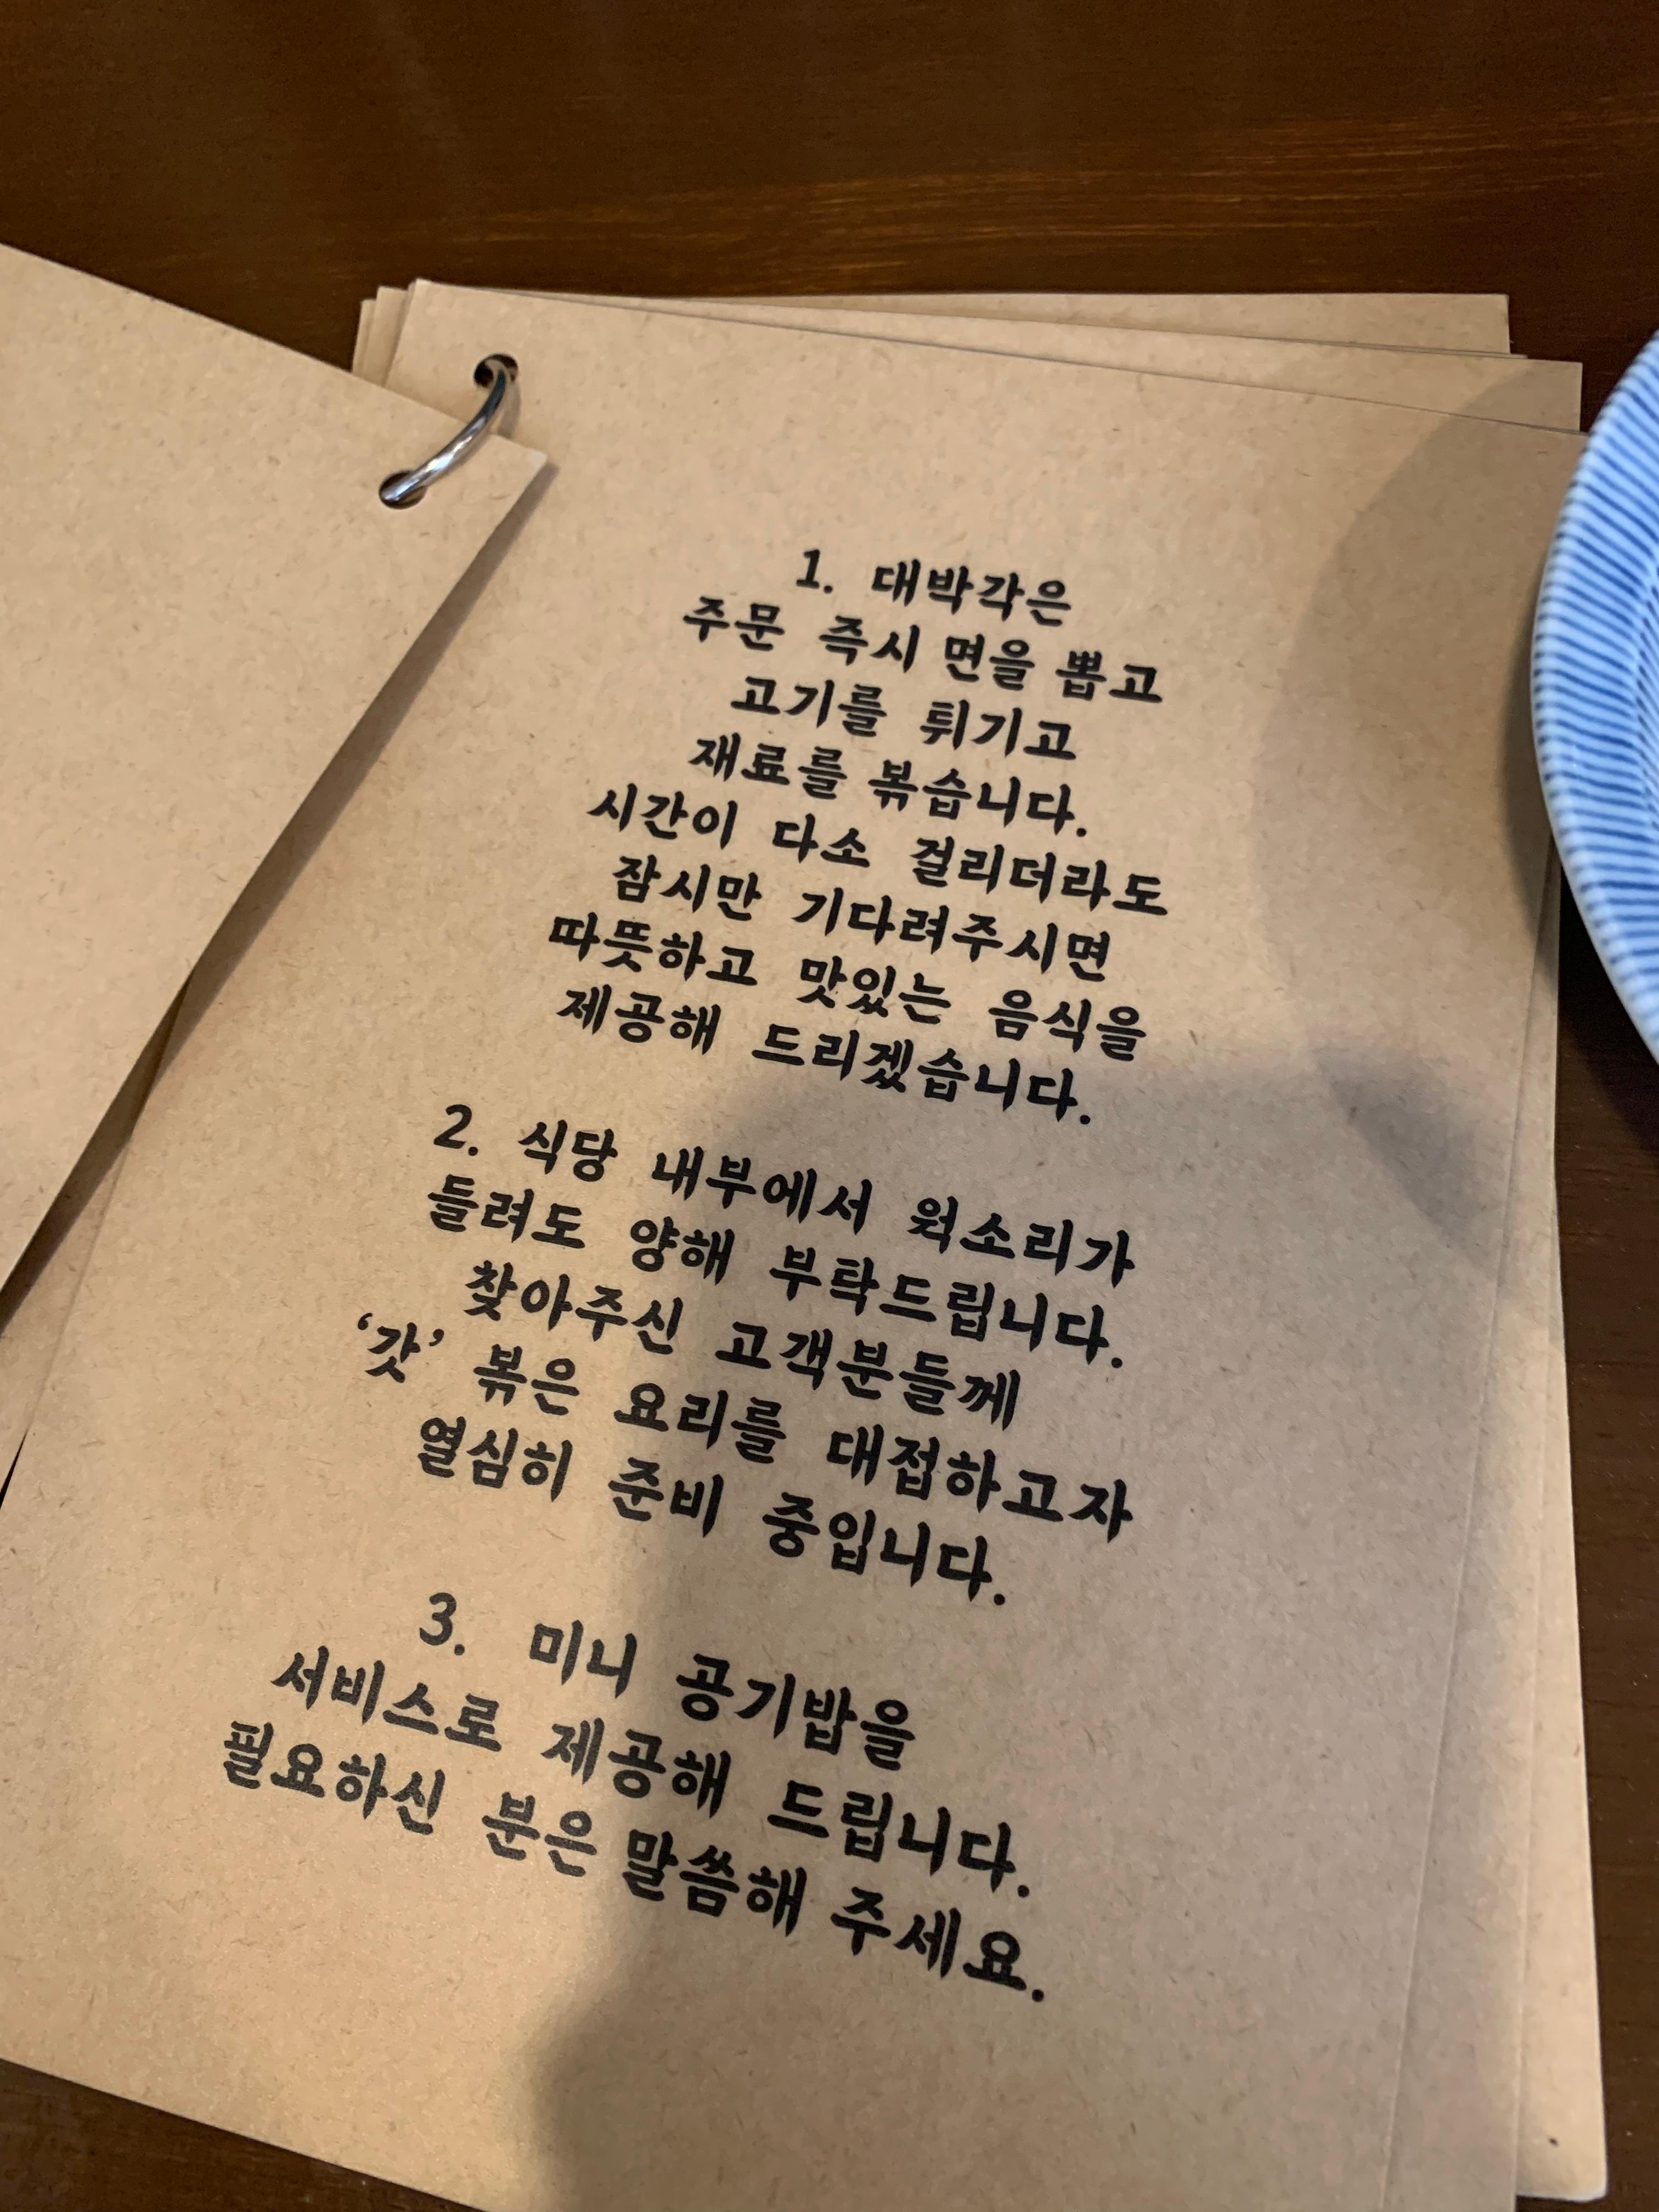 1. 대박각은
주문 즉시 면을 뽑고
고기를 튀기고
재료를 볶습니다.
시간이 다소 걸리더라도
잠시만 기다려주시면
따뜻하고 맛있는 음식을
제공해 드리겠습니다.
2. 식당 내부에서 웍소리가
들려도 양해 부탁드립니다.
찾아주신 고객분들께
‘갓’ 볶은 요리를 대접하고자
열심히 준비 중입니다.
3. 미니 공기밥을
서비스로 제공해 드립니다.
필요하신 분은 말씀해 주세요.